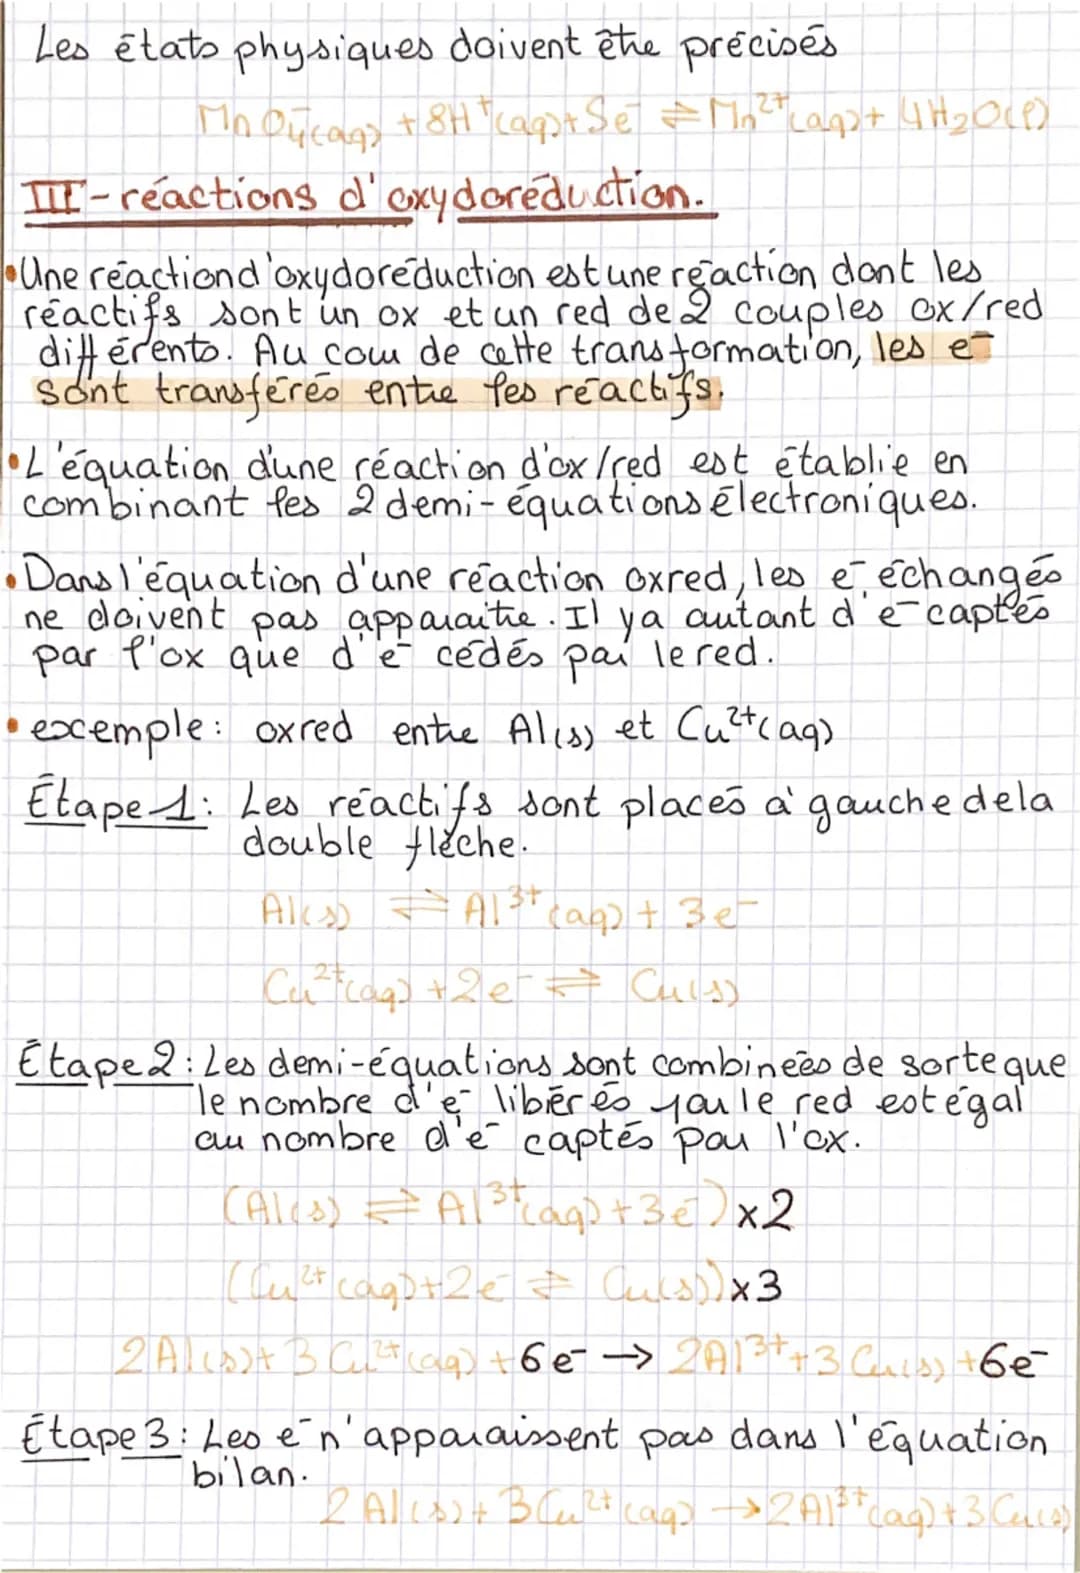 Les états physiques doivent être précisés
MnO₄⁻(aq) + 8H⁺(aq) + 5e⁻ ⇌ Mn²⁺(aq) + 4H₂O(l)
III - réactions d'oxydoréduction.
• Une réaction d'oxydoréduction est une réaction dont les
réactifs sont un ox et un red de 2 couples ox/red
différents. Au cour de cette transformation, les e⁻
sont transférés entre les réactifs.
• L'équation d'une réaction d'ox/red est établie en
combinant les 2 demi-équations électroniques.
• Dans l'équation d'une réaction oxred, les e⁻ échangés
ne doivent pas apparaitre. Il y a autant d'e⁻ captés
par l'ox que d'e⁻ cédés par le red.
• excemple : oxred entre Al(s) et Cu²⁺(aq)
Étape 1 : Les réactifs sont placés à gauche de la
double flèche.
Al(s) ⇌ Al³⁺(aq) + 3e⁻
Cu²⁺(aq) + 2e⁻ ⇌ Cu(s)
Étape 2 : Les demi-équations sont combinées de sorte que
le nombre d'e⁻ libérés par le red est égal
au nombre d'e⁻ captés par l'ox.
(Al(s) ⇌ Al³⁺(aq) + 3e⁻) x2
(Cu²⁺(aq) + 2e⁻ ⇌ Cu(s)) x3
2Al(s) + 3Cu²⁺(aq) + 6e⁻ → 2Al³⁺ + 3Cu(s) + 6e⁻
Étape 3 : Les e⁻ n'apparaissent pas dans l'équation
bilan.
2Al(s) + 3Cu²⁺(aq) → 2Al³⁺(aq) + 3Cu(s)